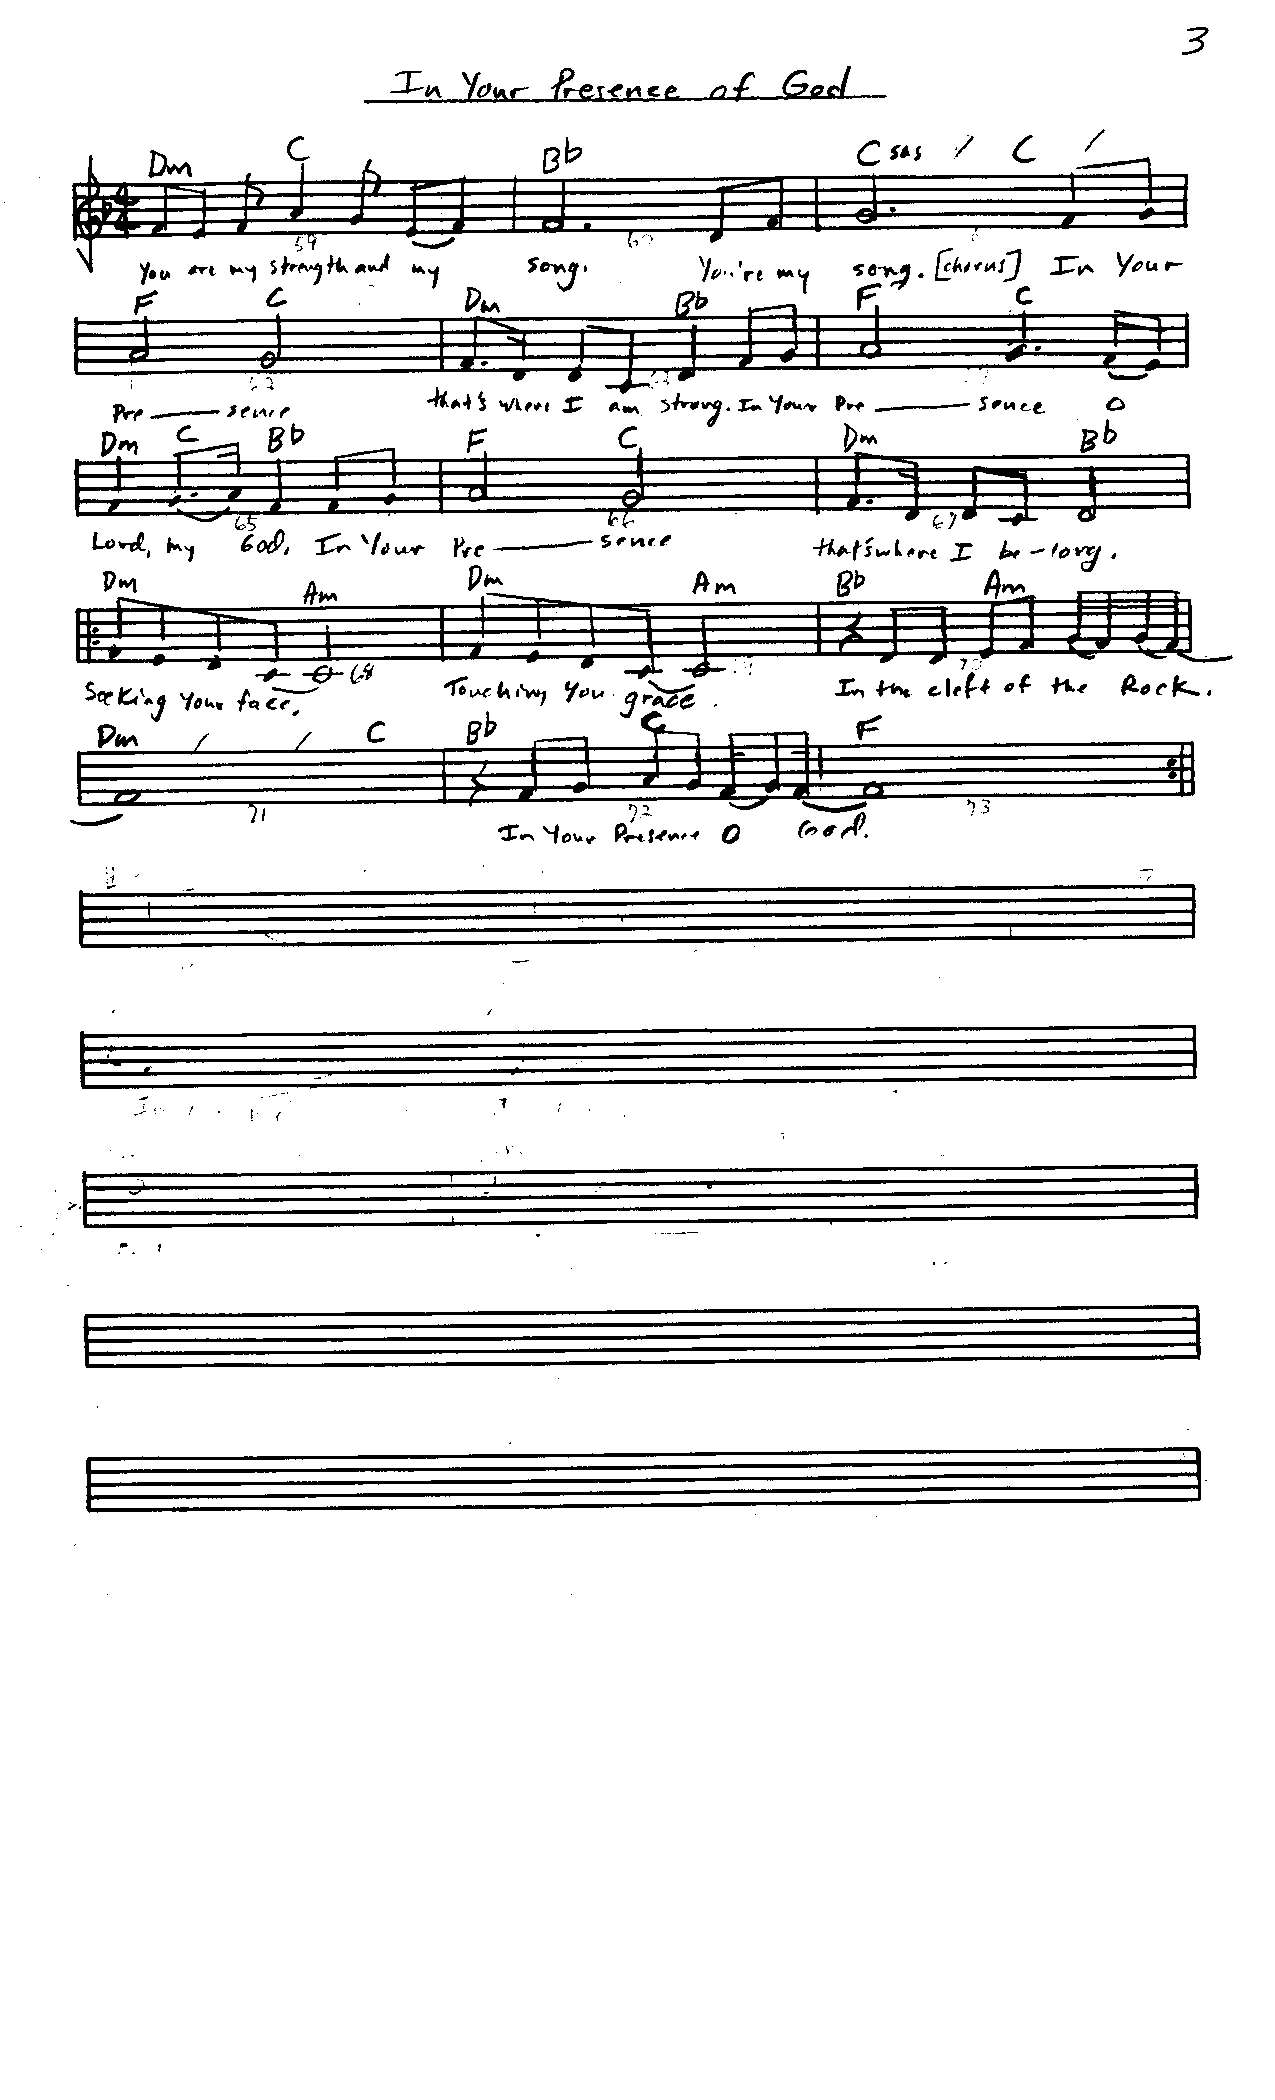 3
In Your Presence of God
Dm C Bb C sus / C /
4 4
59 60
You are my strength and my song. You're my song. [chorus] In Your
F C Dm Bb F C
Pre———sence that's where I am strong. In Your Pre———sence O
Dm C Bb F C Dm Bb
65 66 67
Lord, my God. In Your Pre———sence that's where I be-long.
Dm Am Dm Am Bb Am
68 70
Seeking Your face. Touching You grace. In the cleft of the Rock.
Dm / / C Bb C F
71 72 73
In Your Presence O God.